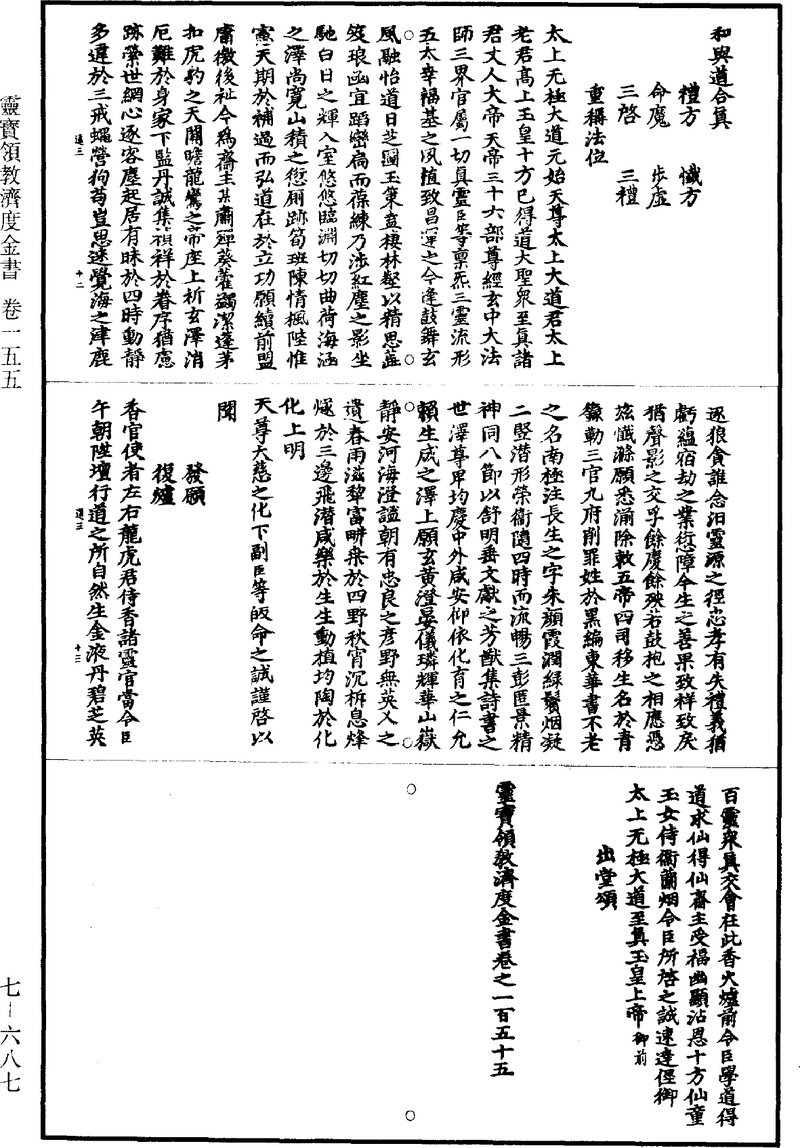 和與道合真
禮方　懺方
命魔　步虛
三啓　三禮
重稱法位
太上无極大道元始天尊太上大道君太上
老君高上玉皇十方已得道大聖衆至真諸
君丈人大帝天帝三十六部尊經玄中大法
師三界官屬一切真靈臣等稟炁三靈流形
五太幸福基之夙植致昌運之今逢鼓舞玄
風融怡道日芝圃玉策
之澤尚寬山積之愆厠跡筍班陳情楓陛惟
憲天期於補過而弘道在於立功願續前盟
庸徼後祉今爲齋主某肅殫葵藿蠲潔蓬茅
扣虎豹之天關瞻龍鸞之帝座上祈玄澤消
厄難於身家下監丹誠集禎祥於眷序猶慮
跡縈世網心逐客塵起居有昧於四時動靜
多違於三戒蠅營狗苟豈思速覺海之津鹿
逐狼貪誰念汩靈源之徑忠孝有失禮義猶
虧藴宿劫之業愆障今生之善果致祥致戾
猶聲影之交孚餘慶餘殃若鼓枹之相應憑
兹懺滌願悉湔除敕五帝四司移生名於青
籙勒三官九府削罪姓於黑編東華書不老
之名南極注長生之字朱顔霞潤緑鬢烟凝
二竪潜形榮衛隨四時而流暢三彭匿景精
神同八節以舒明垂文獻之芳猷集詩書之
世澤尊卑均慶中外咸安仰依化育之仁允
賴生成之澤上願玄黄澄晏儀璘輝華山嶽
静安河海澄謐朝有忠良之彦野無英乂之
遺春雨滋犂富畊桒於四野秋宵沉柝息烽
燧於三邊飛潜咸樂於生生動植均陶於化
化上明
天尊大慈之化下副臣等皈命之誠謹啓以
聞
發願
復爐
香官使者左右龍虎君侍香諸靈官當令臣
午朝陞壇行道之所自然生金液丹碧芝英
百靈衆真交會在此香火爐前令臣學道得
道求仙得仙齋主受福幽顯沾恩十方仙童
玉女侍衞蘭烟令臣所啓之誠速達徑御
太上无極大道至真玉皇上帝御前
出堂頌
靈寳領教濟度金書卷之一百五十五
靈寶領教濟度金書　卷一五五
七—六八七